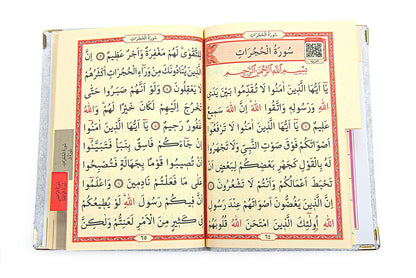 سُورَةُ الْحُجُرَاتِ
سُورَةُ الْحُجُرَاتِ
بِسْمِ اللّٰهِ الرَّحْمٰنِ الرَّحِيمِ
يَا اَيُّهَا الَّذِينَ اٰمَنُوا لَا تُقَدِّمُوا بَيْنَ يَدَيِ
اللّٰهِ وَرَسُولِهِ وَاتَّقُوا اللّٰهَ اِنَّ اللّٰهَ سَمِيعٌ
عَلِيمٌ ۝ يَا اَيُّهَا الَّذِينَ اٰمَنُوا لَا تَرْفَعُوا
اَصْوَاتَكُمْ فَوْقَ صَوْتِ النَّبِيِّ وَلَا تَجْهَرُوا
لَهُ بِالْقَوْلِ كَجَهْرِ بَعْضِكُمْ لِبَعْضٍ اَنْ
تَحْبَطَ اَعْمَالُكُمْ وَاَنْتُمْ لَا تَشْعُرُونَ ۝ اِنَّ
الَّذِينَ يَغُضُّونَ اَصْوَاتَهُمْ عِنْدَ رَسُولِ
اللّٰهِ اُولٰئِكَ الَّذِينَ امْتَحَنَ اللّٰهُ قُلُوبَهُمْ
٦٤
سُورَةُ الْحُجُرَاتِ
لِلتَّقْوٰى لَهُمْ مَغْفِرَةٌ وَاَجْرٌ عَظِيمٌ ۝ اِنَّ
الَّذِينَ يُنَادُونَكَ مِنْ وَرَاءِ الْحُجُرَاتِ اَكْثَرُهُمْ
لَا يَعْقِلُونَ ۝ وَلَوْ اَنَّهُمْ صَبَرُوا حَتّٰى
تَخْرُجَ اِلَيْهِمْ لَكَانَ خَيْرًا لَهُمْ وَاللّٰهُ
غَفُورٌ رَحِيمٌ ۝ يَا اَيُّهَا الَّذِينَ اٰمَنُوا اِنْ
جَاءَكُمْ فَاسِقٌ بِنَبَاٍ فَتَبَيَّنُوا
اَنْ تُصِيبُوا قَوْمًا بِجَهَالَةٍ فَتُصْبِحُوا
عَلٰى مَا فَعَلْتُمْ نَادِمِينَ ۝ وَاعْلَمُوا
اَنَّ فِيكُمْ رَسُولَ اللّٰهِ لَوْ يُطِيعُكُمْ
فِي كَثِيرٍ مِنَ الْاَمْرِ لَعَنِتُّمْ وَلٰكِنَّ
٦٥